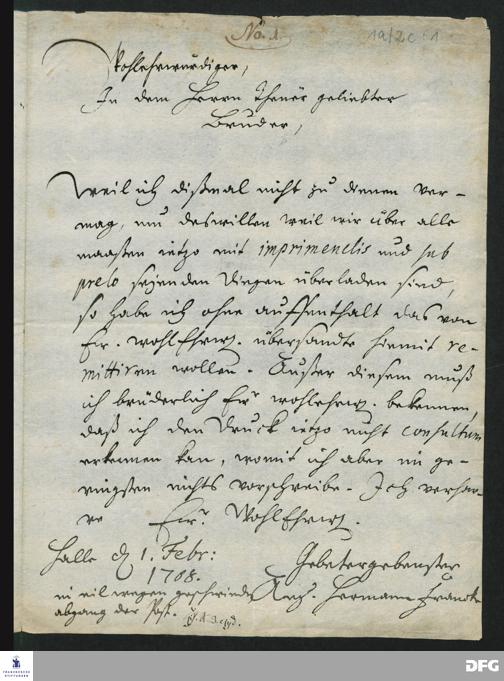 No. 1.
1a/2c : 1
Wohlehrwürdiger,
In dem Herrn theuer geliebter
Bruder,
Weil ich dißmal nicht zu dienen ver-
mag, um deswillen weil wir über alle
maaßen ietzo mit imprimendis und sub
prelo seyenden Dingen überladen sind,
so habe ich ohne auffenthalt das von
Ew. WohlEhrw. übersandte hiemit re-
mittiren wollen. Außer diesem muß
ich brüderlich Ewr wohlehrw. bekennen,
daß ich den Druck ietzo nicht consultum
erkennen kan, womit ich aber im ge-
ringsten nichts vorschreibe. Ich verhar-
re Ewr. WohlEhrw.
Halle d 1. Febr:
1708.
Gebetergebenster
Aug. Hermann Francke
in eil wegen geschwinden
abgang der Post.
FRANCKESCHE
STIFTUNGEN
DFG